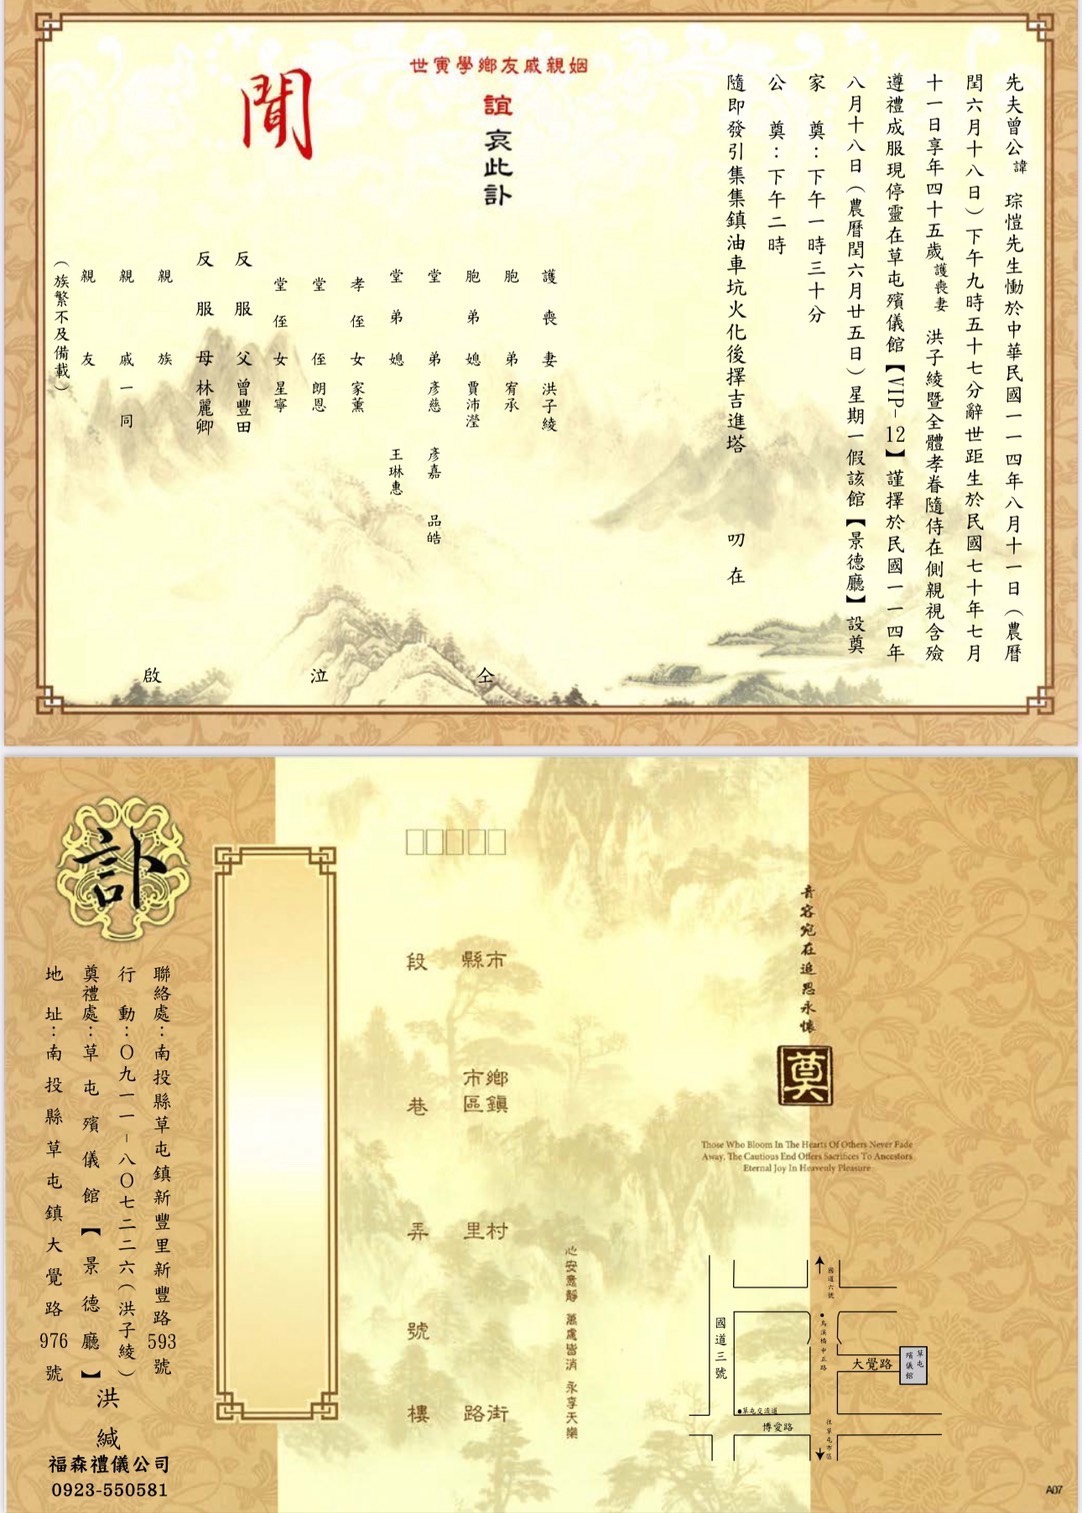 先夫曾公諱 琮愷先生慟於中華民國一一四年八月十一日（農曆
閏六月十八日）下午九時五十七分辭世距生於民國七十年七月
十一日享年四十五歲護喪妻 洪子綾暨全體孝眷隨侍在側親視含殮
遵禮成服現停靈在草屯殯儀館【VIP-12】謹擇於民國一一四年
八月十八日（農曆閏六月廿五日）星期一假該館【景德廳】設奠
家 奠：下午一時三十分
公 奠：下午二時
隨即發引集集鎮油車坑火化後擇吉進塔 叨在
姻親戚友鄉學寅世
誼 哀此訃
聞
護喪妻 洪子綾
胞弟 宥承
胞弟媳 賈沛瀅
堂弟 彥慈 彥嘉 品皓
堂弟媳 王琳惠
孝侄女 家薰
堂侄 朗恩
堂侄女 星寧
反服父 曾豐田
反服母 林麗卿
親族
親戚 一同
親友
（族繁不及備載）
仝 泣 啟
音容宛在追思永懷
奠
Those Who Bloom In The Hearts Of Others Never Fade
Away. The Cautious End Offers Sacrifices To Ancestors
Eternal Joy In Heavenly Pleasure
國道六號
烏溪橋中正路
國道三號
大覺路
草屯殯儀館
草屯交流道
博愛路
往草屯市區
心安意靜 萬慮皆消 永享天樂
縣市
鄉鎮市區
村里
街路
段
巷
弄
號
樓
訃
聯絡處：南投縣草屯鎮新豐里新豐路593號
行 動：〇九一一-八〇七二二六（洪子綾）
奠禮處：草屯殯儀館【景德廳】
地 址：南投縣草屯鎮大覺路976號
洪 緘
福森禮儀公司
0923-550581
A07